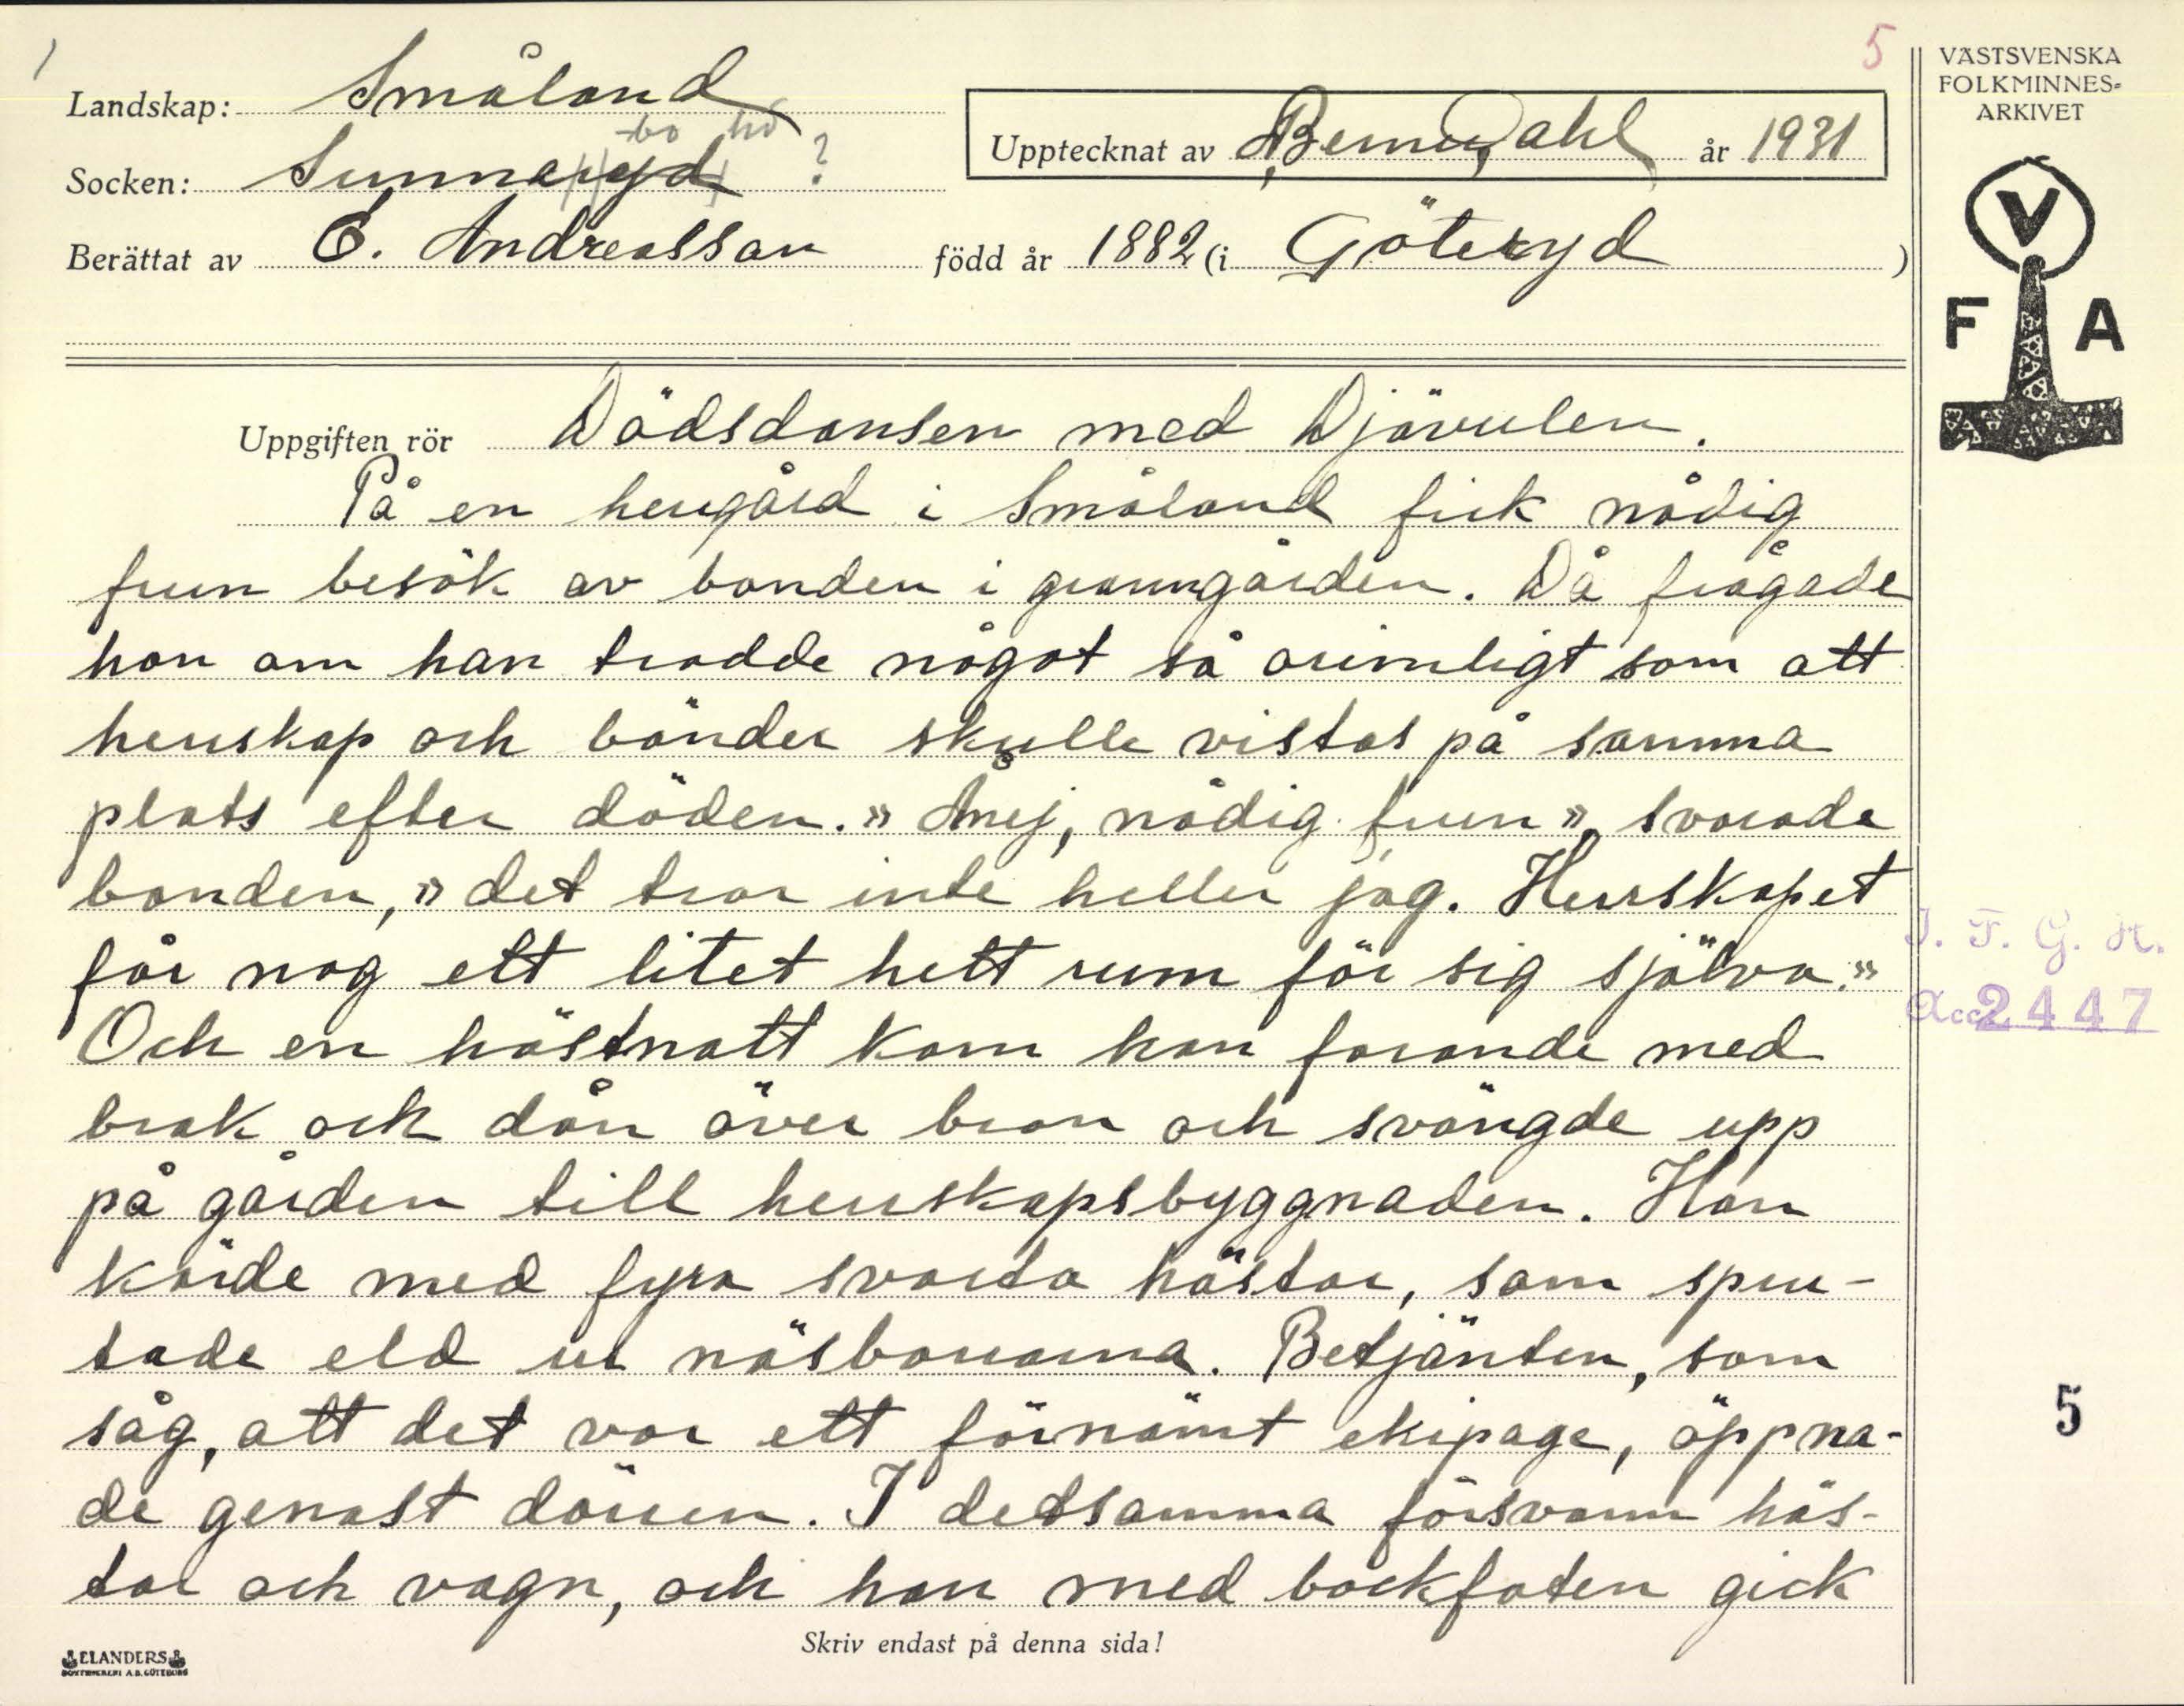 5
VÄSTSVENSKA
FOLKMINNES-
ARKIVET
Landskap: Småland
-bo hö
Socken: Sunneryd ?
Upptecknat av Berndt Dahl år 1931
Berättat av E. Andreasson född år 1882 (i Göteryd)
V
F A
Uppgiften rör Dödsdansen med Djävulen.
På en herrgård i Småland fick nådig
frun besök av bonden i granngården. Då frågade
hon om han trodde något så orimligt som att
herrskap och bönder skulle vistas på samma
plats efter döden. » Ånej, nådig frun », svarade
bonden, » det tror inte heller jag. Herrskapet
får nog ett litet hett rum för sig själva. »
Och en höstnatt kom han farande med
brak och dån över bron och svängde upp
på gården till herrskapsbyggnaden. Han
körde med fyra svarta hästar, som spru-
tade eld ur näsborrarna. Betjänten, som
såg, att det var ett förnämt ekipage, öppna-
de genast dörren. I detsamma försvann häs-
tar och vagn, och han med bockfoten gick
I. F. G. H.
Acc. 2447
5
Skriv endast på denna sida!
ELANDERS
BOKTRYCKERI A.B. GÖTEBORG